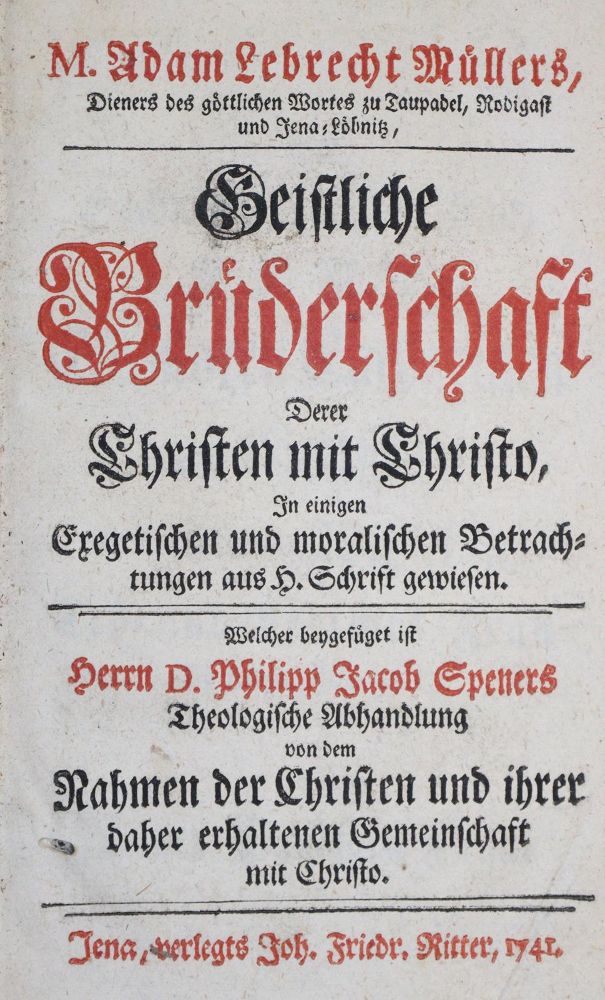 M. Adam Lebrecht Müllers,
Dieners des göttlichen Wortes zu Taupadel, Rodigast
und Jena-Löbnitz,
Geistliche
Brüderschaft
Derer
Christen mit Christo,
In einigen
Exegetischen und moralischen Betrach-
tungen aus H. Schrift gewiesen.
Welcher beygefüget ist
Herrn D. Philipp Jacob Speners
Theologische Abhandlung
von dem
Nahmen der Christen und ihrer
daher erhaltenen Gemeinschaft
mit Christo.
Jena, verlegts Joh. Friedr. Ritter, 1741.